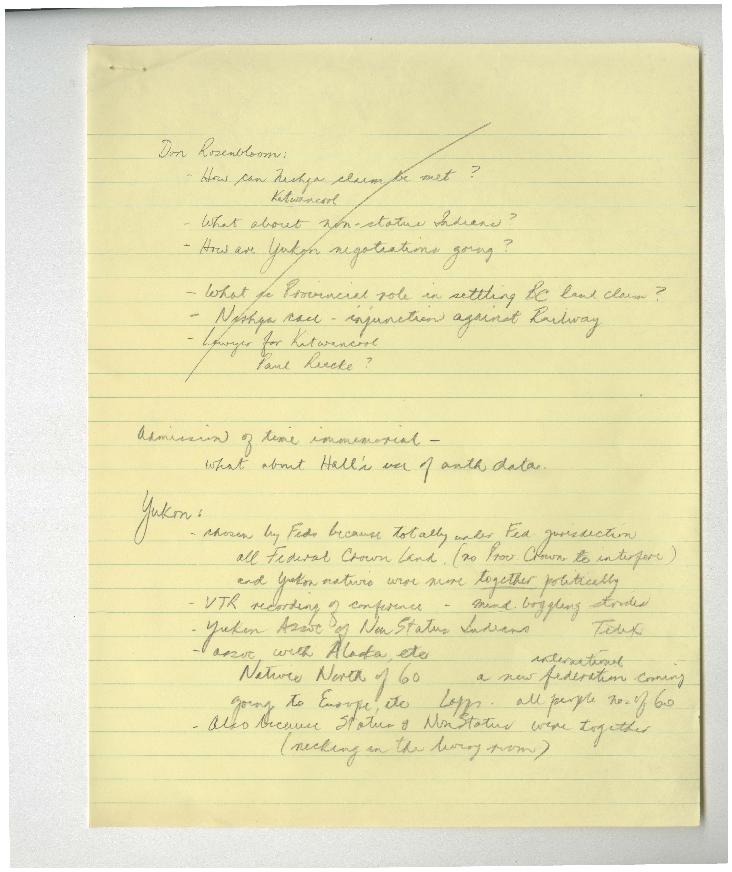 Don Rosenbloom:
- How can Nishga claim be met?
Kitwancool
- What about non-status Indians?
- How are Yukon negotiations going?
- What is Provincial role in settling BC land claim?
- Nishga case - injunction against Railway
- Lawyer for Kitwancool
Paul ?
Admission of time immemorial -
what about Hall's use of anth data.
Yukon:
- chosen by Feds because totally under Fed jurisdiction
all Federal Crown Land. (no Prov Crown to interfere)
and Yukon natives were more together politically
- VTR recording of conference - mind boggling
- Yukon Assoc of Non Status Indians
- assoc with Alaska, etc
international
Natives North of 60 a new federation coming
going to Europe, etc Lapps. all people no. of 60
- Also because Status & NonStatus were together
(necking in the living room)